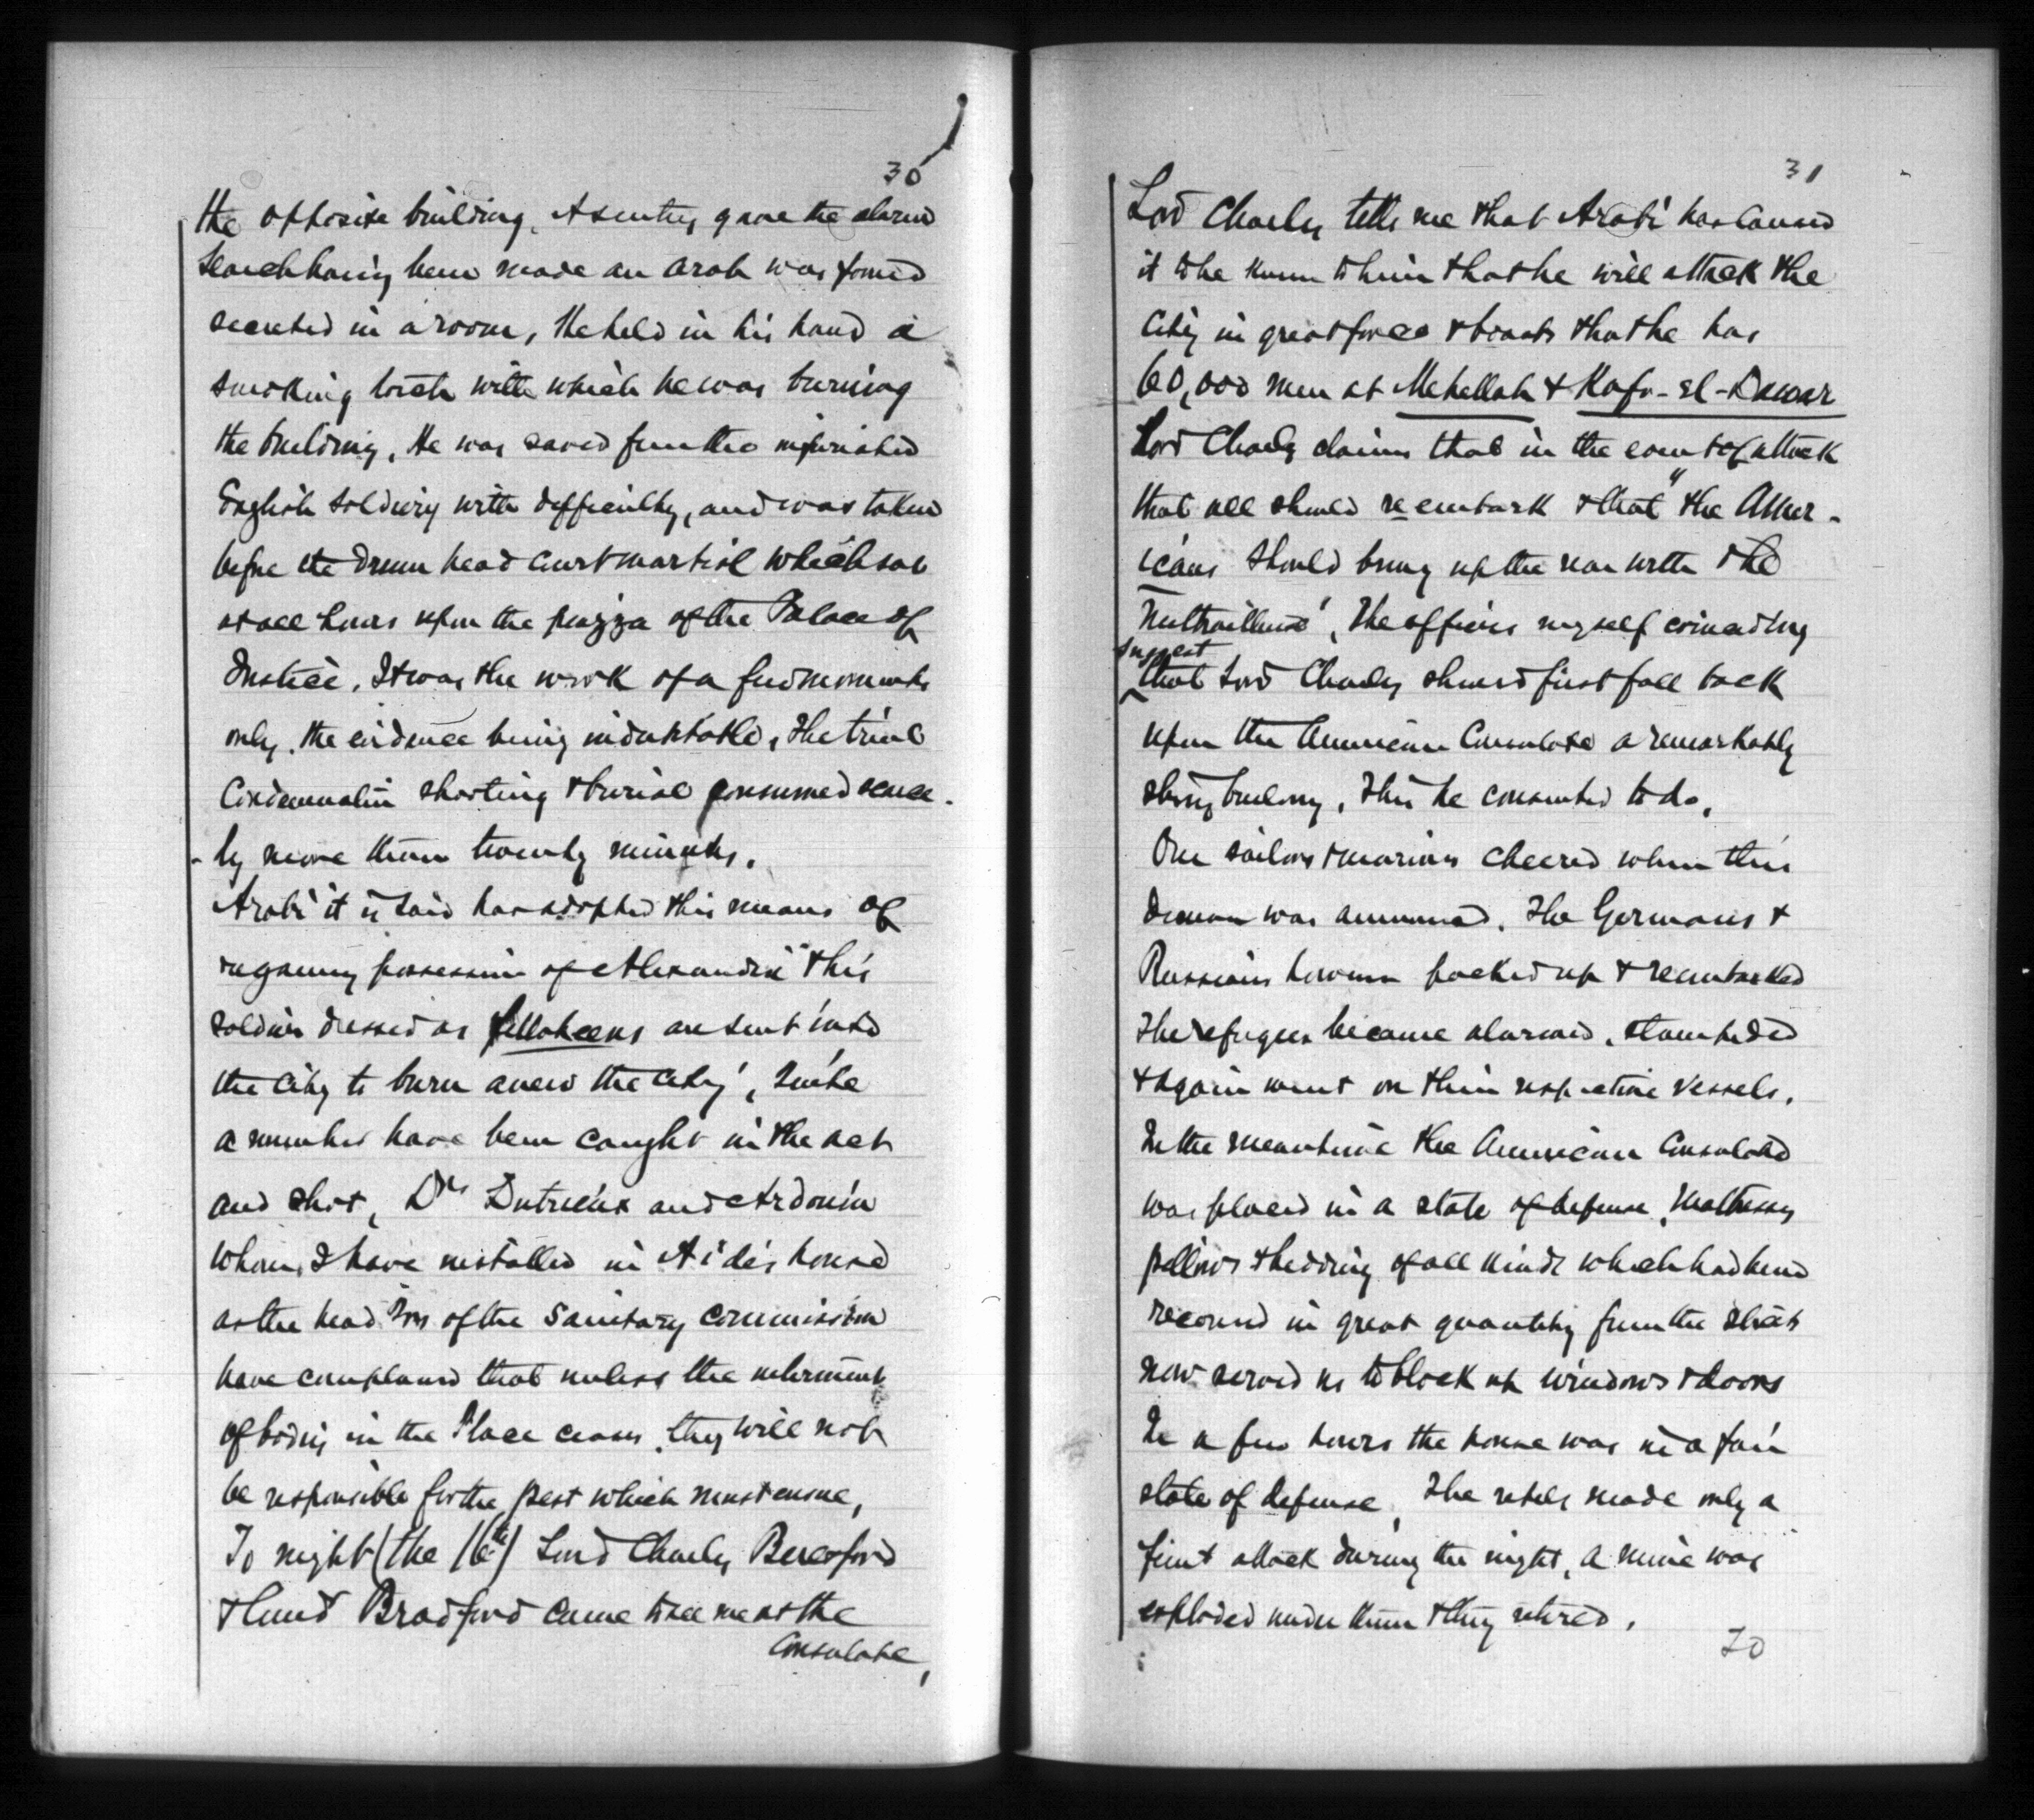 30
the opposite building. A sentry gave the alarm
Search having been made an arab was found
secreted in a room, He held in his hand a
smoking torch with which he was burning
the building, He was saved from the infuriated
English soldiery with difficulty, and was taken
before the Drum head Court martial which sat
at all hours upon the piazza of the Palace of
Justice. It was the work of a few moments
only. the evidence being indubitable, The trial
Condemnation shooting & burial consumed scarce-
-ly more than twenty minutes.
Arabi it is said has adopted this means of
regaining possession of Alexandria" this
soldiers dressed as fellaheens are sent into
the City to burn anew the City', Quite
a number have been caught in the act
and shot, Drs Dutrieux and Ardouin
whom I have installed in Aïde's house
as the head Drs of the Sanitary Commission
have complained that unless the interment
of bodies in the Place ceases, they will not
be responsible for the pest which must ensue,
To night (the 16th) Lord Charles Beresford
& Lieut Bradford came to see me at the
Consulate,
31
Lord Charles tells me that Arabi has caused
it to be known to him that he will attack the
City in great force & boasts that he has
60,000 men at Mehallah & Kafr-el-Dawar
Lord Charles claims that in the event of attack
that all should reembark & that "the Amer-
icans should bring up the rear with the
Mitrailleuse', The officers myself coinciding
suggest
that Lord Charles should first fall back
upon the American Consulate a remarkably
strong building, This he consented to do,
Our sailors & marines cheered when this
was announced. The Germans &
Russians however packed up & reembarked
The refugees became alarmed, stampeded
& again went on their respective vessels.
In the meantime the American Consulate
was placed in a state of defense, Mattresses
pillows & bedding of all kinds which had been
recovered in great quantity from the streets
now served us to block up windows & doors
In a few hours the house was in a fair
state of defense, The rebels made only a
feint attack during the night, a mine was
exploded under them & they retired.
20